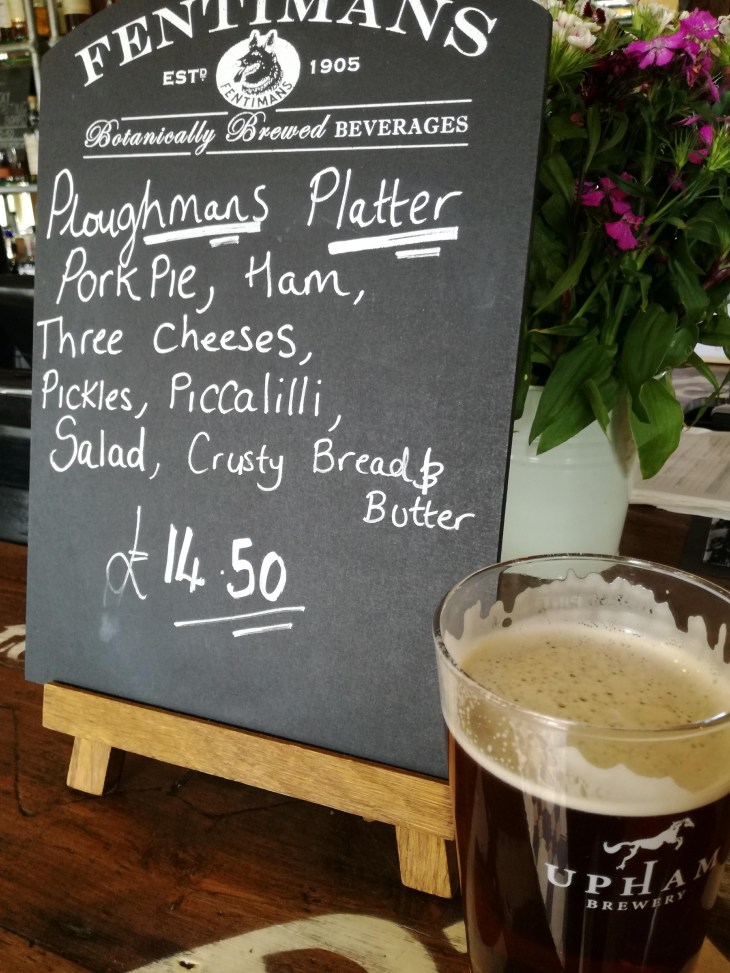 FENTIMANS
ESTD 1905
FENTIMANS
Botanically Brewed BEVERAGES
Ploughmans Platter
Pork Pie, Ham,
Three Cheeses,
Pickles, Piccalilli,
Salad, Crusty Bread &
Butter
£14.50
UPHAM
BREWERY